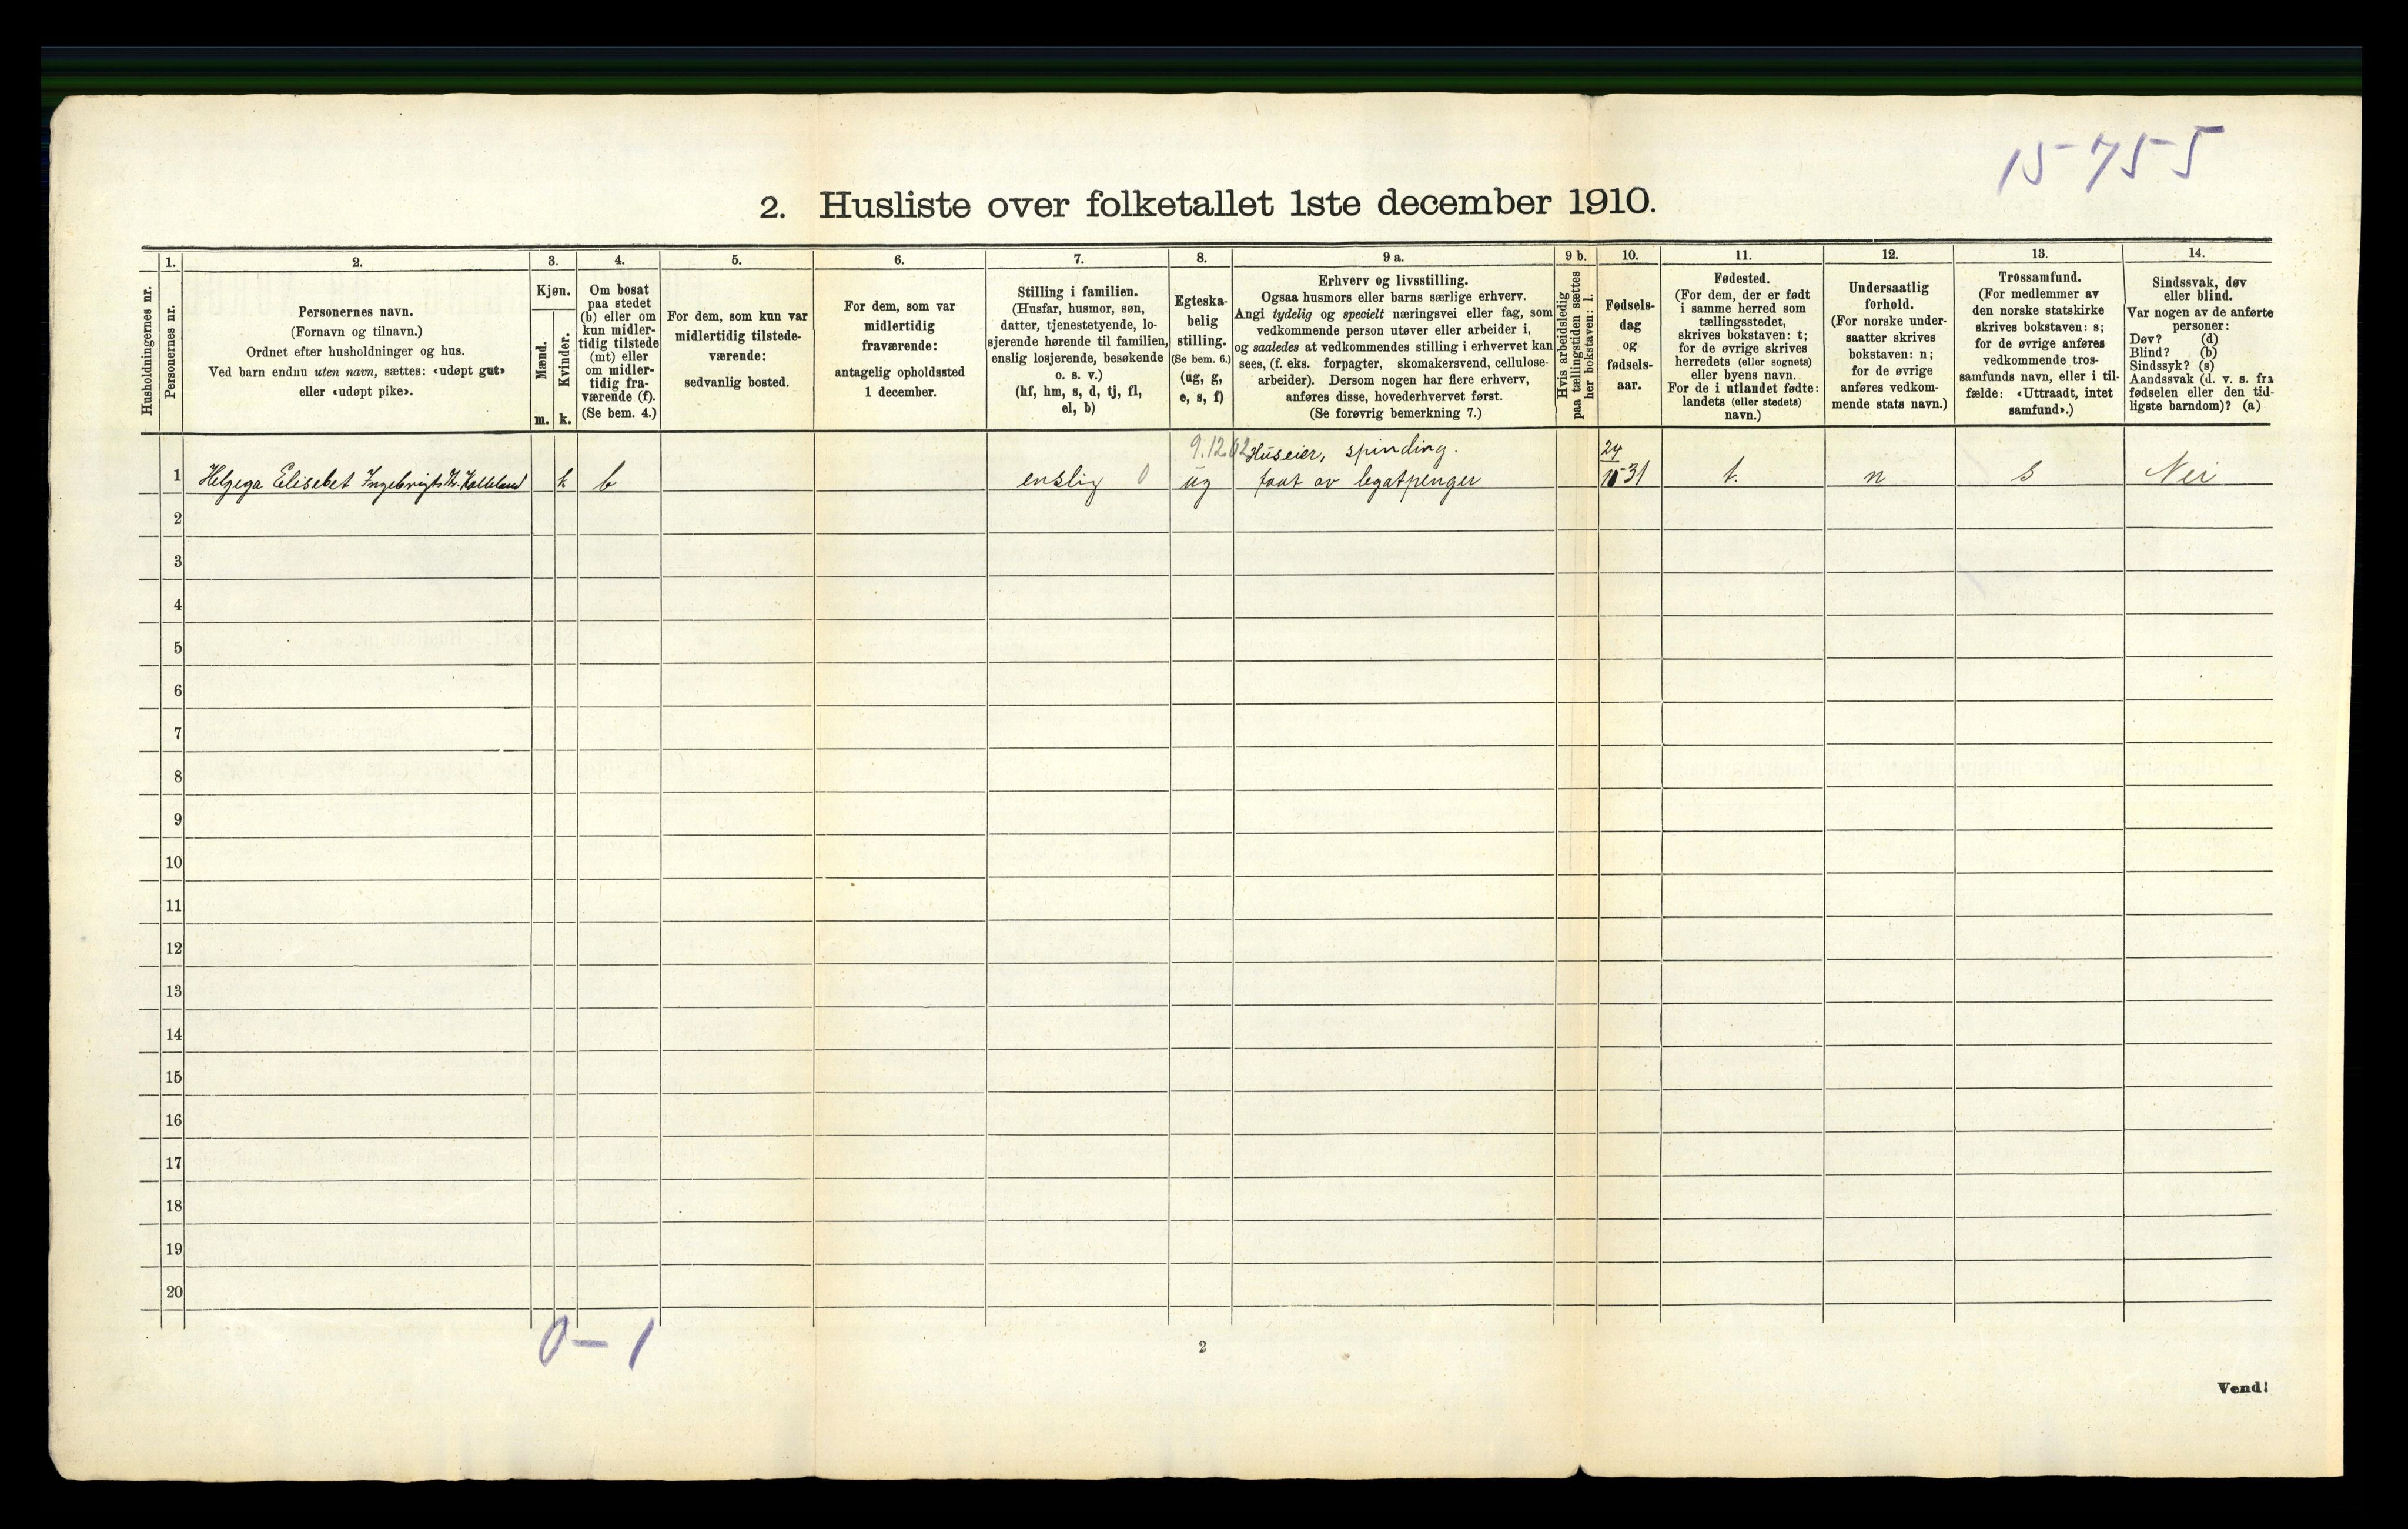 15-75-5
2. Husliste over folketallet 1ste december 1910.
Husholdningernes nr.
1.
Personernes nr.
2.
Personernes navn.
(Fornavn og tilnavn.)
Ordnet efter husholdninger og hus.
Ved barn endnu uten navn, sættes: «udøpt gut»
eller «udøpt pike».
3.
Kjøn.
Mænd.
Kvinder.
m. k.
4.
Om bosat
paa stedet
(b) eller om
kun midler-
tidig tilstede
(mt) eller
om midler-
tidig fra-
værende (f).
(Se bem. 4.)
5.
For dem, som kun var
midlertidig tilstede-
værende:
sedvanlig bosted.
6.
For dem, som var
midlertidig
fraværende:
antagelig opholdssted
1 december.
7.
Stilling i familien.
(Husfar, husmor, søn,
datter, tjenestetyende, lo-
sjerende hørende til familien,
enslig losjerende, besøkende
o. s. v.)
(hf, hm, s, d, tj, fl,
el, b)
8.
Egteska-
belig
stilling.
(Se bem. 6.)
(ug, g,
e, s, f)
9 a.
Erhverv og livsstilling.
Ogsaa husmors eller barns særlige erhverv.
Angi tydelig og specielt næringsvei eller fag, som
vedkommende person utøver eller arbeider i,
og saaledes at vedkommendes stilling i erhvervet kan
sees, (f. eks. forpagter, skomakersvend, cellulose-
arbeider). Dersom nogen har flere erhverv,
anføres disse, hovederhvervet først.
(Se forøvrig bemerkning 7.)
9 b.
Hvis arbeidsledig
paa tællingstiden sættes
her bokstaven: l.
10.
Fødsels-
dag
og
fødsels-
aar.
11.
Fødested.
(For dem, der er født
i samme herred som
tællingsstedet,
skrives bokstaven: t;
for de øvrige skrives
herredets (eller sognets)
eller byens navn.
For de i utlandet fødte:
landets (eller stedets)
navn.)
12.
Undersaatlig
forhold.
(For norske under-
saatter skrives
bokstaven: n;
for de øvrige
anføres vedkom-
mende stats navn.)
13.
Trossamfund.
(For medlemmer av
den norske statskirke
skrives bokstaven: s;
for de øvrige anføres
vedkommende tros-
samfunds navn, eller i til-
fælde: «Uttraadt, intet
samfund».)
14.
Sindssvak, døv
eller blind.
Var nogen av de anførte
personer:
Døv? (d)
Blind? (b)
Sindssyk? (s)
Aandssvak (d. v. s. fra
fødselen eller den tid-
ligste barndom)? (a)
9.12.02 Huseier, spinding. 24
1 Helgega Elisebet k b enslig 0 ug faat av legatpenger 31 t. n s Nei
2
3
4
5
6
7
8
9
10
11
12
13
14
15
16
17
18
19
20
0-1
2
Vend!